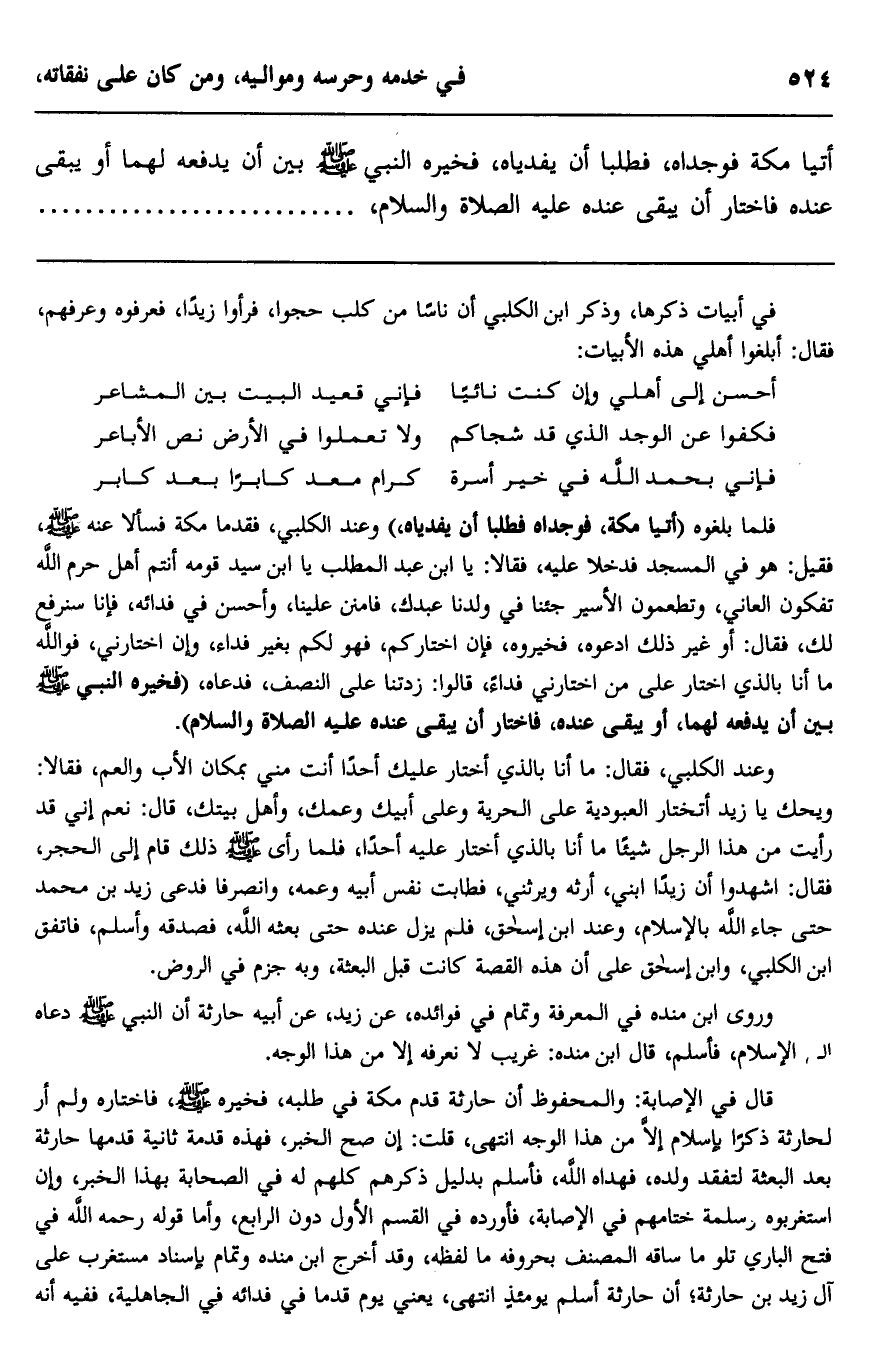 ٥٢٤ في خدمه وحرسه ومواليه، ومن كان على نفقاته،
أتيا مكة فوجداه، فطلبا أن يفدياه، فخيره النبي ﷺ بين أن يدفعه لهما أو يبقى
عنده فاختار أن يبقى عنده عليه الصلاة والسلام، ...........................
في أبيات ذكرها، وذكر ابن الكلبي أن ناسًا من كلب حجوا، فرأوا زيدًا، فعرفوه وعرفهم،
فقال: أبلغوا أهلي هذه الأبيات:
أحسن إلى أهلي وإن كنت نائيًا فإني قعيد البيت بين المشاعر
فكفوا عن الوجد الذي قد شجاكم ولا تعملوا في الأرض نص الأباعر
فإني بحمد اللَّه في خير أسرة كرام معد كابرًا بعد كابر
فلما بلغوه (أتيا مكة، فوجداه فطلبا أن يفدياه،) وعند الكلبي، فقدما مكة فسألا عنه ﷺ،
فقيل: هو في المسجد فدخلا عليه، فقالا: يا ابن عبد المطلب يا ابن سيد قومه أنتم أهل حرم اللَّه
تفكون العاني، وتطعمون الأسير جئنا في ولدنا عبدك، فامنن علينا، وأحسن في فدائه، فإنا سنرفع
لك، فقال: أو غير ذلك ادعوه، فخيروه، فإن اختاركم، فهو لكم بغير فداء، وإن اختارني، فواللَّه
ما أنا بالذي اختار على من اختارني فداءً، قالوا: زدتنا على النصف، فدعاه، (فخيره النبي ﷺ
بين أن يدفعه لهما، أو يبقى عنده، فاختار أن يبقى عنده عليه الصلاة والسلام).
وعند الكلبي، فقال: ما أنا بالذي أختار عليك أحدًا أنت مني بمكان الأب والعم، فقالا:
ويحك يا زيد أتختار العبودية على الحرية وعلى أبيك وعمك، وأهل بيتك، قال: نعم إني قد
رأيت من هذا الرجل شيئًا ما أنا بالذي أختار عليه أحدًا، فلما رأى ﷺ ذلك قام إلى الحجر،
فقال: اشهدوا أن زيدًا ابني، أرثه ويرثني، فطابت نفس أبيه وعمه، وانصرفا فدعى زيد بن محمد
حتى جاء اللَّه بالإسلام، وعند ابن إسحٰق، فلم يزل عنده حتى بعثه اللَّه، فصدقه وأسلم، فاتفق
ابن الكلبي، وابن إسحٰق على أن هذه القصة كانت قبل البعثة، وبه جزم في الروض.
وروى ابن منده في المعرفة وتمام في فوائده، عن زيد، عن أبيه حارثة أن النبي ﷺ دعاه
الإسلام، فأسلم، قال ابن منده: غريب لا نعرفه إلا من هذا الوجه.
قال في الإصابة: والمحفوظ أن حارثة قدم مكة في طلبه، فخيره ﷺ، فاختاره ولم أر
لحارثة ذكرًا بإسلام إلاَّ من هذا الوجه انتهى، قلت: إن صح الخبر، فهذه قدمة ثانية قدمها حارثة
بعد البعثة لتفقد ولده، فهداه اللَّه، فأسلم بدليل ذكرهم كلهم له في الصحابة بهذا الخبر، وإن
استغربوه رسلمة ختامهم في الإصابة، فأورده في القسم الأول دون الرابع، وأما قوله رحمه اللَّه في
فتح الباري تلو ما ساقه المصنف بحروفه ما لفظه، وقد أخرج ابن منده وتمام بإسناد مستغرب على
آل زيد بن حارثة؛ أن حارثة أسلم يومئذٍ انتهى، يعني يوم قدما في فدائه في الجاهلية، ففيه أنه